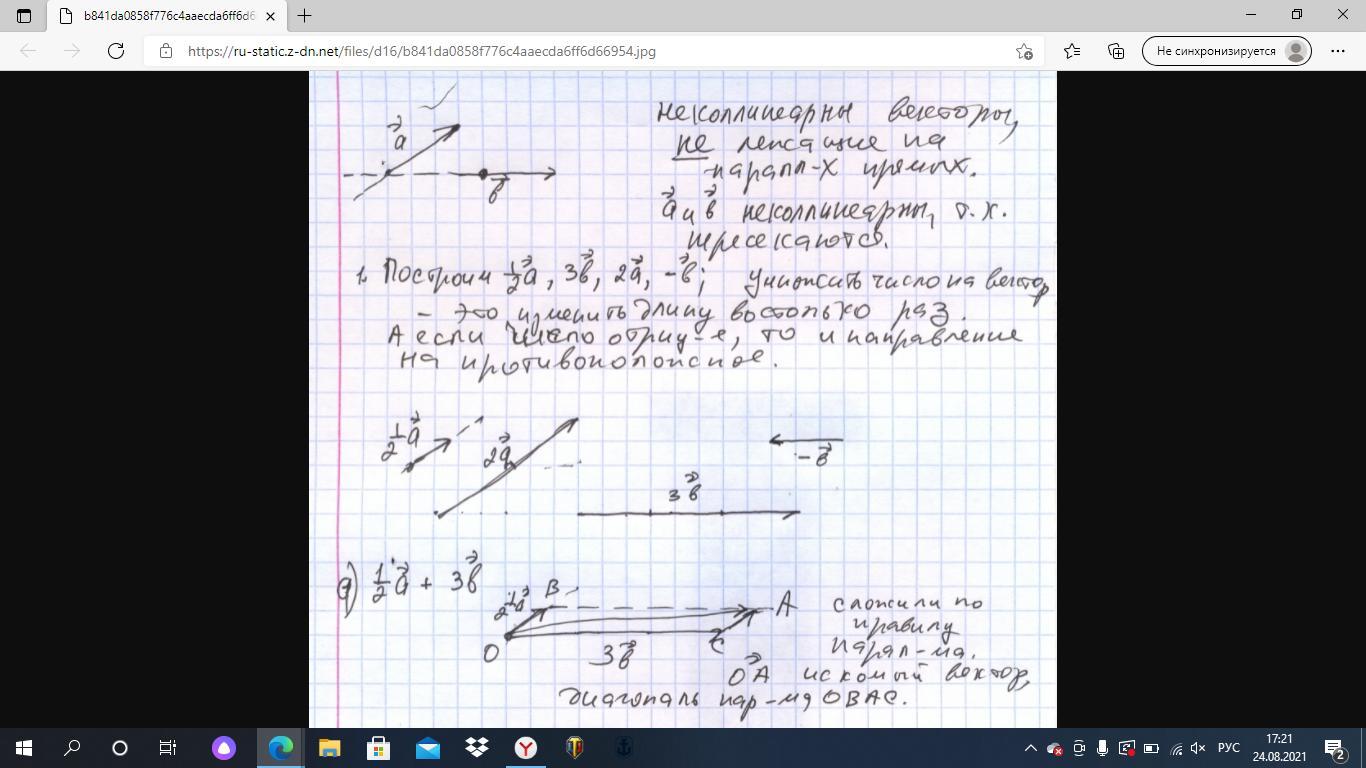 b841da0858f776c4aaecda6ff6d6
https://ru-static.z-dn.net/files/d16/b841da0858f776c4aaecda6ff6d66954.jpg
Не синхронизируется
a
в
неколлинеарны векторы,
не лежащие на
паралл-х прямых.
a и в неколлинеарны, т.к.
пересекаются.
1. Построим 1/2 a, 3в, 2a, -в; умножить число на вектор
- это изменить длину во столько раз.
А если число отриц-е, то и направление
на противоположное.
1/2 a
2a
3в
-в
а) 1/2 a + 3в
1/2 a
B
A
O
3в
C
сложили по
правилу
парал-ма.
OA искомый вектор,
диагональ пар-ма OBAC.
РУС
17:21
24.08.2021
2